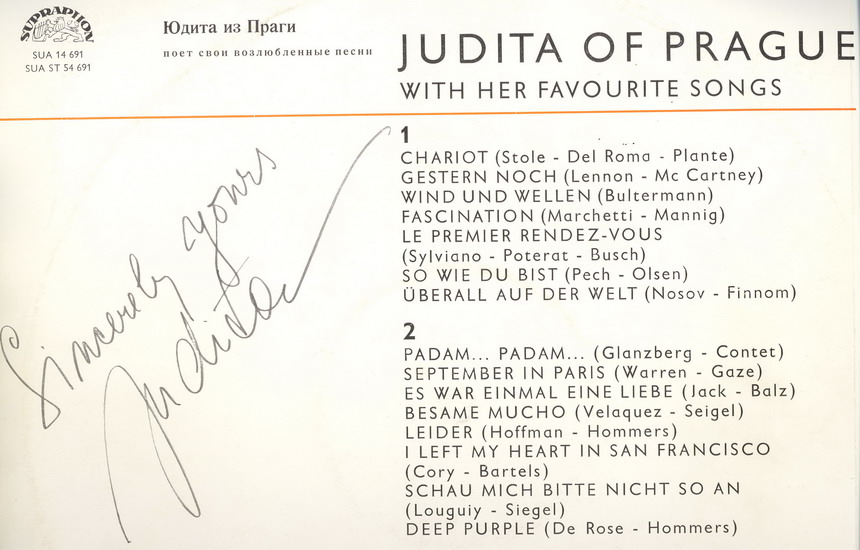 SUPRAPHON
SUA 14 691
SUA ST 54 691
Юдита из Праги
поет свои возлюбленные песни
JUDITA OF PRAGUE
WITH HER FAVOURITE SONGS
1
CHARIOT (Stole - Del Roma - Plante)
GESTERN NOCH (Lennon - Mc Cartney)
WIND UND WELLEN (Bultermann)
FASCINATION (Marchetti - Mannig)
LE PREMIER RENDEZ-VOUS
(Sylviano - Poterat - Busch)
SO WIE DU BIST (Pech - Olsen)
ÜBERALL AUF DER WELT (Nosov - Finnom)
2
PADAM... PADAM... (Glanzberg - Contet)
SEPTEMBER IN PARIS (Warren - Gaze)
ES WAR EINMAL EINE LIEBE (Jack - Balz)
BESAME MUCHO (Velaquez - Seigel)
LEIDER (Hoffman - Hommers)
I LEFT MY HEART IN SAN FRANCISCO
(Cory - Bartels)
SCHAU MICH BITTE NICHT SO AN
(Louguiy - Siegel)
DEEP PURPLE (De Rose - Hommers)
Sincerely yours
Judita